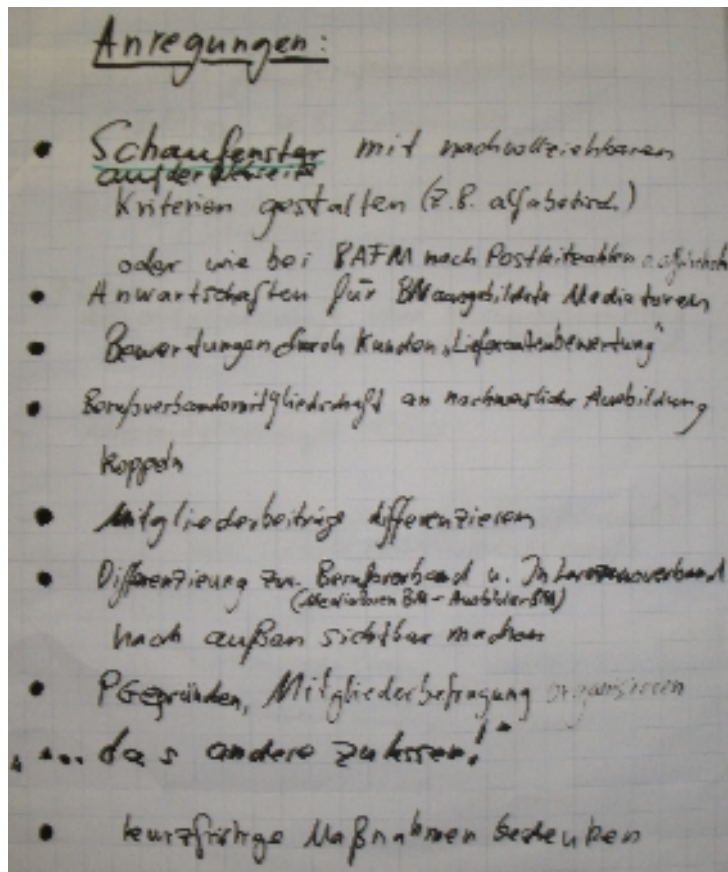 Anregungen:
• Schaufenster mit nachvollziehbaren
auf der
Kriterien gestalten (z.B. alfabetisch)
oder wie bei BAFM nach Postleitzahlen
• Anwartschaften für BM ausgebildete Mediatoren
• Bewertungen durch Kunden „Lieferantenbewertung“
• Berufsverbandsmitgliedschaft an Ausbildung
koppeln
• Mitgliederbeiträge differenzieren
• Differenzierung zw. Berufsverband u. Interessenverband
(Mediatoren BM - Ausbilder BM)
nach außen sichtbar machen
• PG gründen, Mitgliederbefragung organisieren
„... das andere zulassen!“
• kurzfristige Maßnahmen bedenken